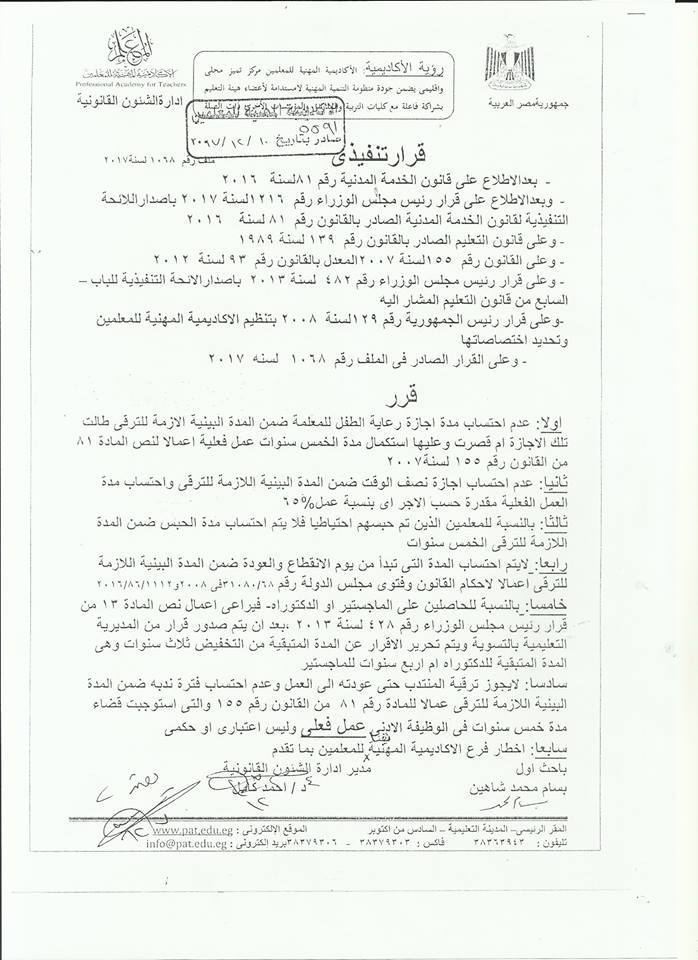 الأكاديمية المهنية للمعلمين
Professional Academy for Teachers
ادارة الشئون القانونية
رؤية الأكاديمية: الأكاديمية المهنية للمعلمين مركز تميز محلى
وإقليمى يضمن جودة منظومة التنمية المهنية لاستدامة لأعضاء هيئة التعليم
بشراكة فاعلة مع كليات التربية
جمهورية مصر العربية
صادر بتاريخ
قرار تنفيذى
ملف رقم ١٠٦٨ لسنة ٢٠١٧
- بعد الاطلاع على قانون الخدمة المدنية رقم ٨١ لسنة ٢٠١٦
- وبعد الاطلاع على قرار رئيس مجلس الوزراء رقم ١٢١٦ لسنة ٢٠١٧ باصدار اللائحة
التنفيذية لقانون الخدمة المدنية الصادر بالقانون رقم ٨١ لسنة ٢٠١٦
- وعلى قانون التعليم الصادر بالقانون رقم ١٣٩ لسنة ١٩٨٩
- وعلى القانون رقم ١٥٥ لسنة ٢٠٠٧ المعدل بالقانون رقم ٩٣ لسنة ٢٠١٢
- وعلى قرار رئيس مجلس الوزراء رقم ٤٨٢ لسنة ٢٠١٣ باصدار الائحة التنفيذية للباب –
السابع من قانون التعليم المشار اليه
-وعلى قرار رئيس الجمهورية رقم ١٢٩ لسنة ٢٠٠٨ بتنظيم الاكاديمية المهنية للمعلمين
وتحديد اختصاصاتها
- وعلى القرار الصادر فى الملف رقم ١٠٦٨ لسنه ٢٠١٧
قرر
اولا: عدم احتساب مدة اجازة رعاية الطفل للمعلمة ضمن المدة البينية الازمة للترقى طالت
تلك الاجازة ام قصرت وعليها استكمال مدة الخمس سنوات عمل فعلية اعمالا لنص المادة ٨١
من القانون رقم ١٥٥ لسنة ٢٠٠٧
ثانيا: عدم احتساب اجازة نصف الوقت ضمن المدة البينية اللازمة للترقى واحتساب مدة
العمل الفعلية مقدرة حسب الاجر اى بنسبة عمل ٦٥%
ثالثا: بالنسبة للمعلمين الذين تم حبسهم احتياطيا فلا يتم احتساب مدة الحبس ضمن المدة
اللازمة للترقى الخمس سنوات
رابعا: لايتم احتساب المدة التى تبدأ من يوم الانقطاع والعودة ضمن المدة البينية اللازمة
للترقى اعمالا لاحكام القانون وفتوى مجلس الدولة رقم ٣١٠٨٠/٦٨ فى ٢٠٠٨ و٢٠١٦/٨٦/١١١٢
خامسا: بالنسبة للحاصلين على الماجستير او الدكتوراه- فيراعى اعمال نص المادة ١٣ من
قرار رئيس مجلس الوزراء رقم ٤٢٨ لسنة ٢٠١٣ ،بعد ان يتم صدور قرار من المديرية
التعليمية بالتسوية ويتم تحرير الاقرار عن المدة المتبقية من التخفيض ثلاث سنوات وهى
المدة المتبقية للدكتوراه ام اربع سنوات للماجستير
سادسا: لايجوز ترقية المنتدب حتى عودته الى العمل وعدم احتساب فترة ندبه ضمن المدة
البينية اللازمة للترقى عمالا للمادة رقم ٨١ من القانون رقم ١٥٥ والتى استوجبت قضاء
مدة خمس سنوات فى الوظيفة الادنى عمل فعلى وليس اعتبارى او حكمى
سابعا: اخطار فرع الاكاديمية المهنية للمعلمين بما تقدم
باحث اول
مدير ادارة الشئون القانونية
بسام محمد شاهين
د/ احمد كامل
المقر الرئيسى – المدينة التعليمية – السادس من اكتوبر
الموقع الإلكترونى : www.pat.edu.eg
تليفون : ٣٨٣٦٣٩٤٣ فاكس : ٣٨٣٧٩٣٠٣ - ٣٨٣٧٩٣٠٦ بريد إلكترونى : info@pat.edu.eg